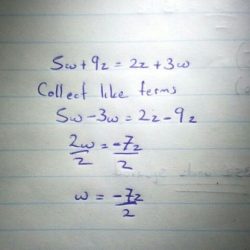 5w + 9z = 2z + 3w
Collect like terms
5w - 3w = 2z - 9z
2w/2 = -7z/2
w = -7z/2